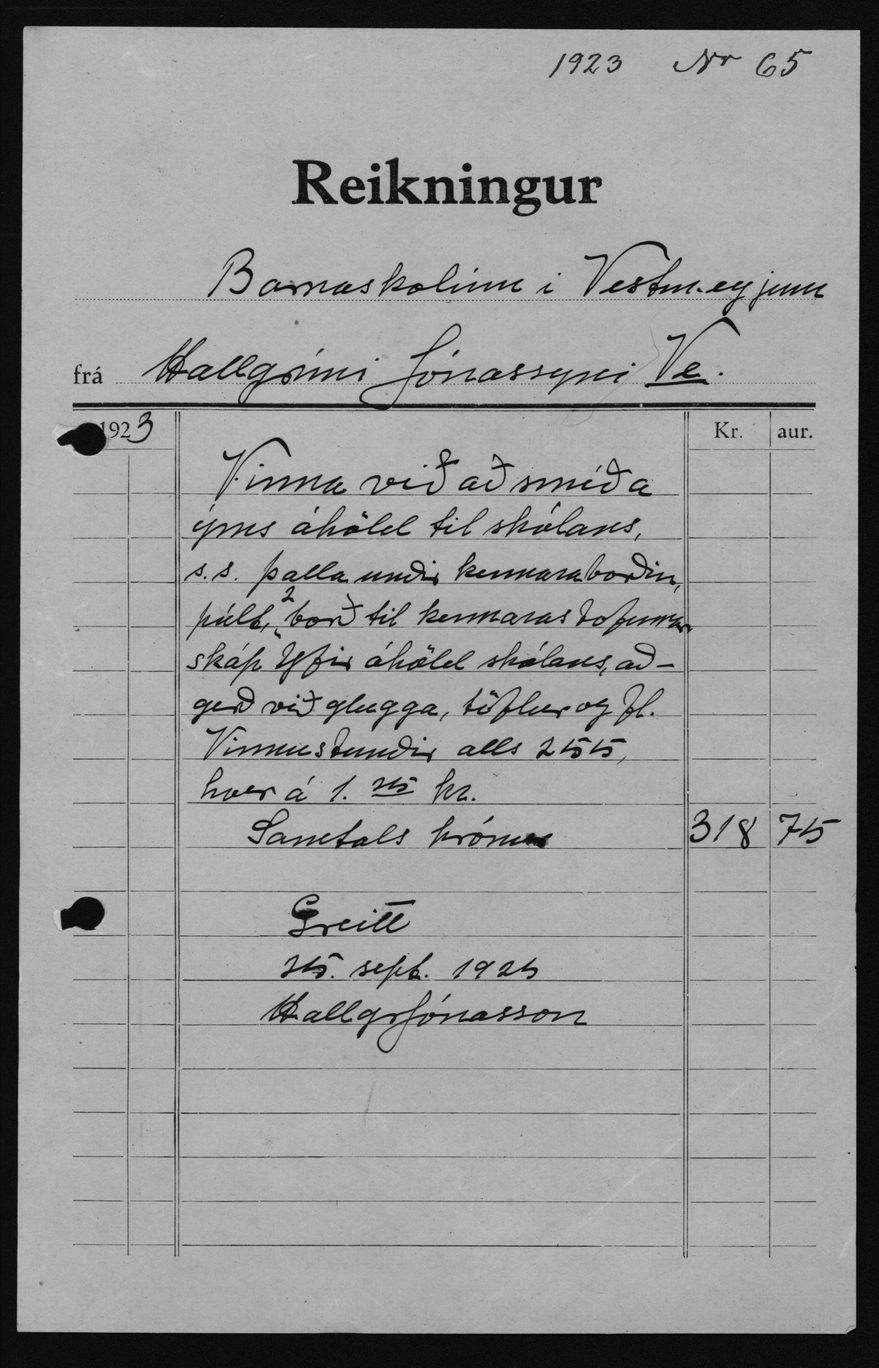 1923 Nr 65
Reikningur
Barnaskolinn i Vestm.eyjum
frá Hallgrími Jónassyni Ve.
1923 Kr. aur.
Vinna við að smíða
ýms áhöld til skólans,
s.s. palla undir kennaraborðin,
púlt, 2 borð til kennarastofunnar
skáp yfir áhöld skólans, að-
gerð við glugga, töflur og fl.
Vinnustundir alls 255,
hver á 1.25 kr.
Samtals krónur 318 75
Greitt
25. sept. 1925
Hallgr Jónasson